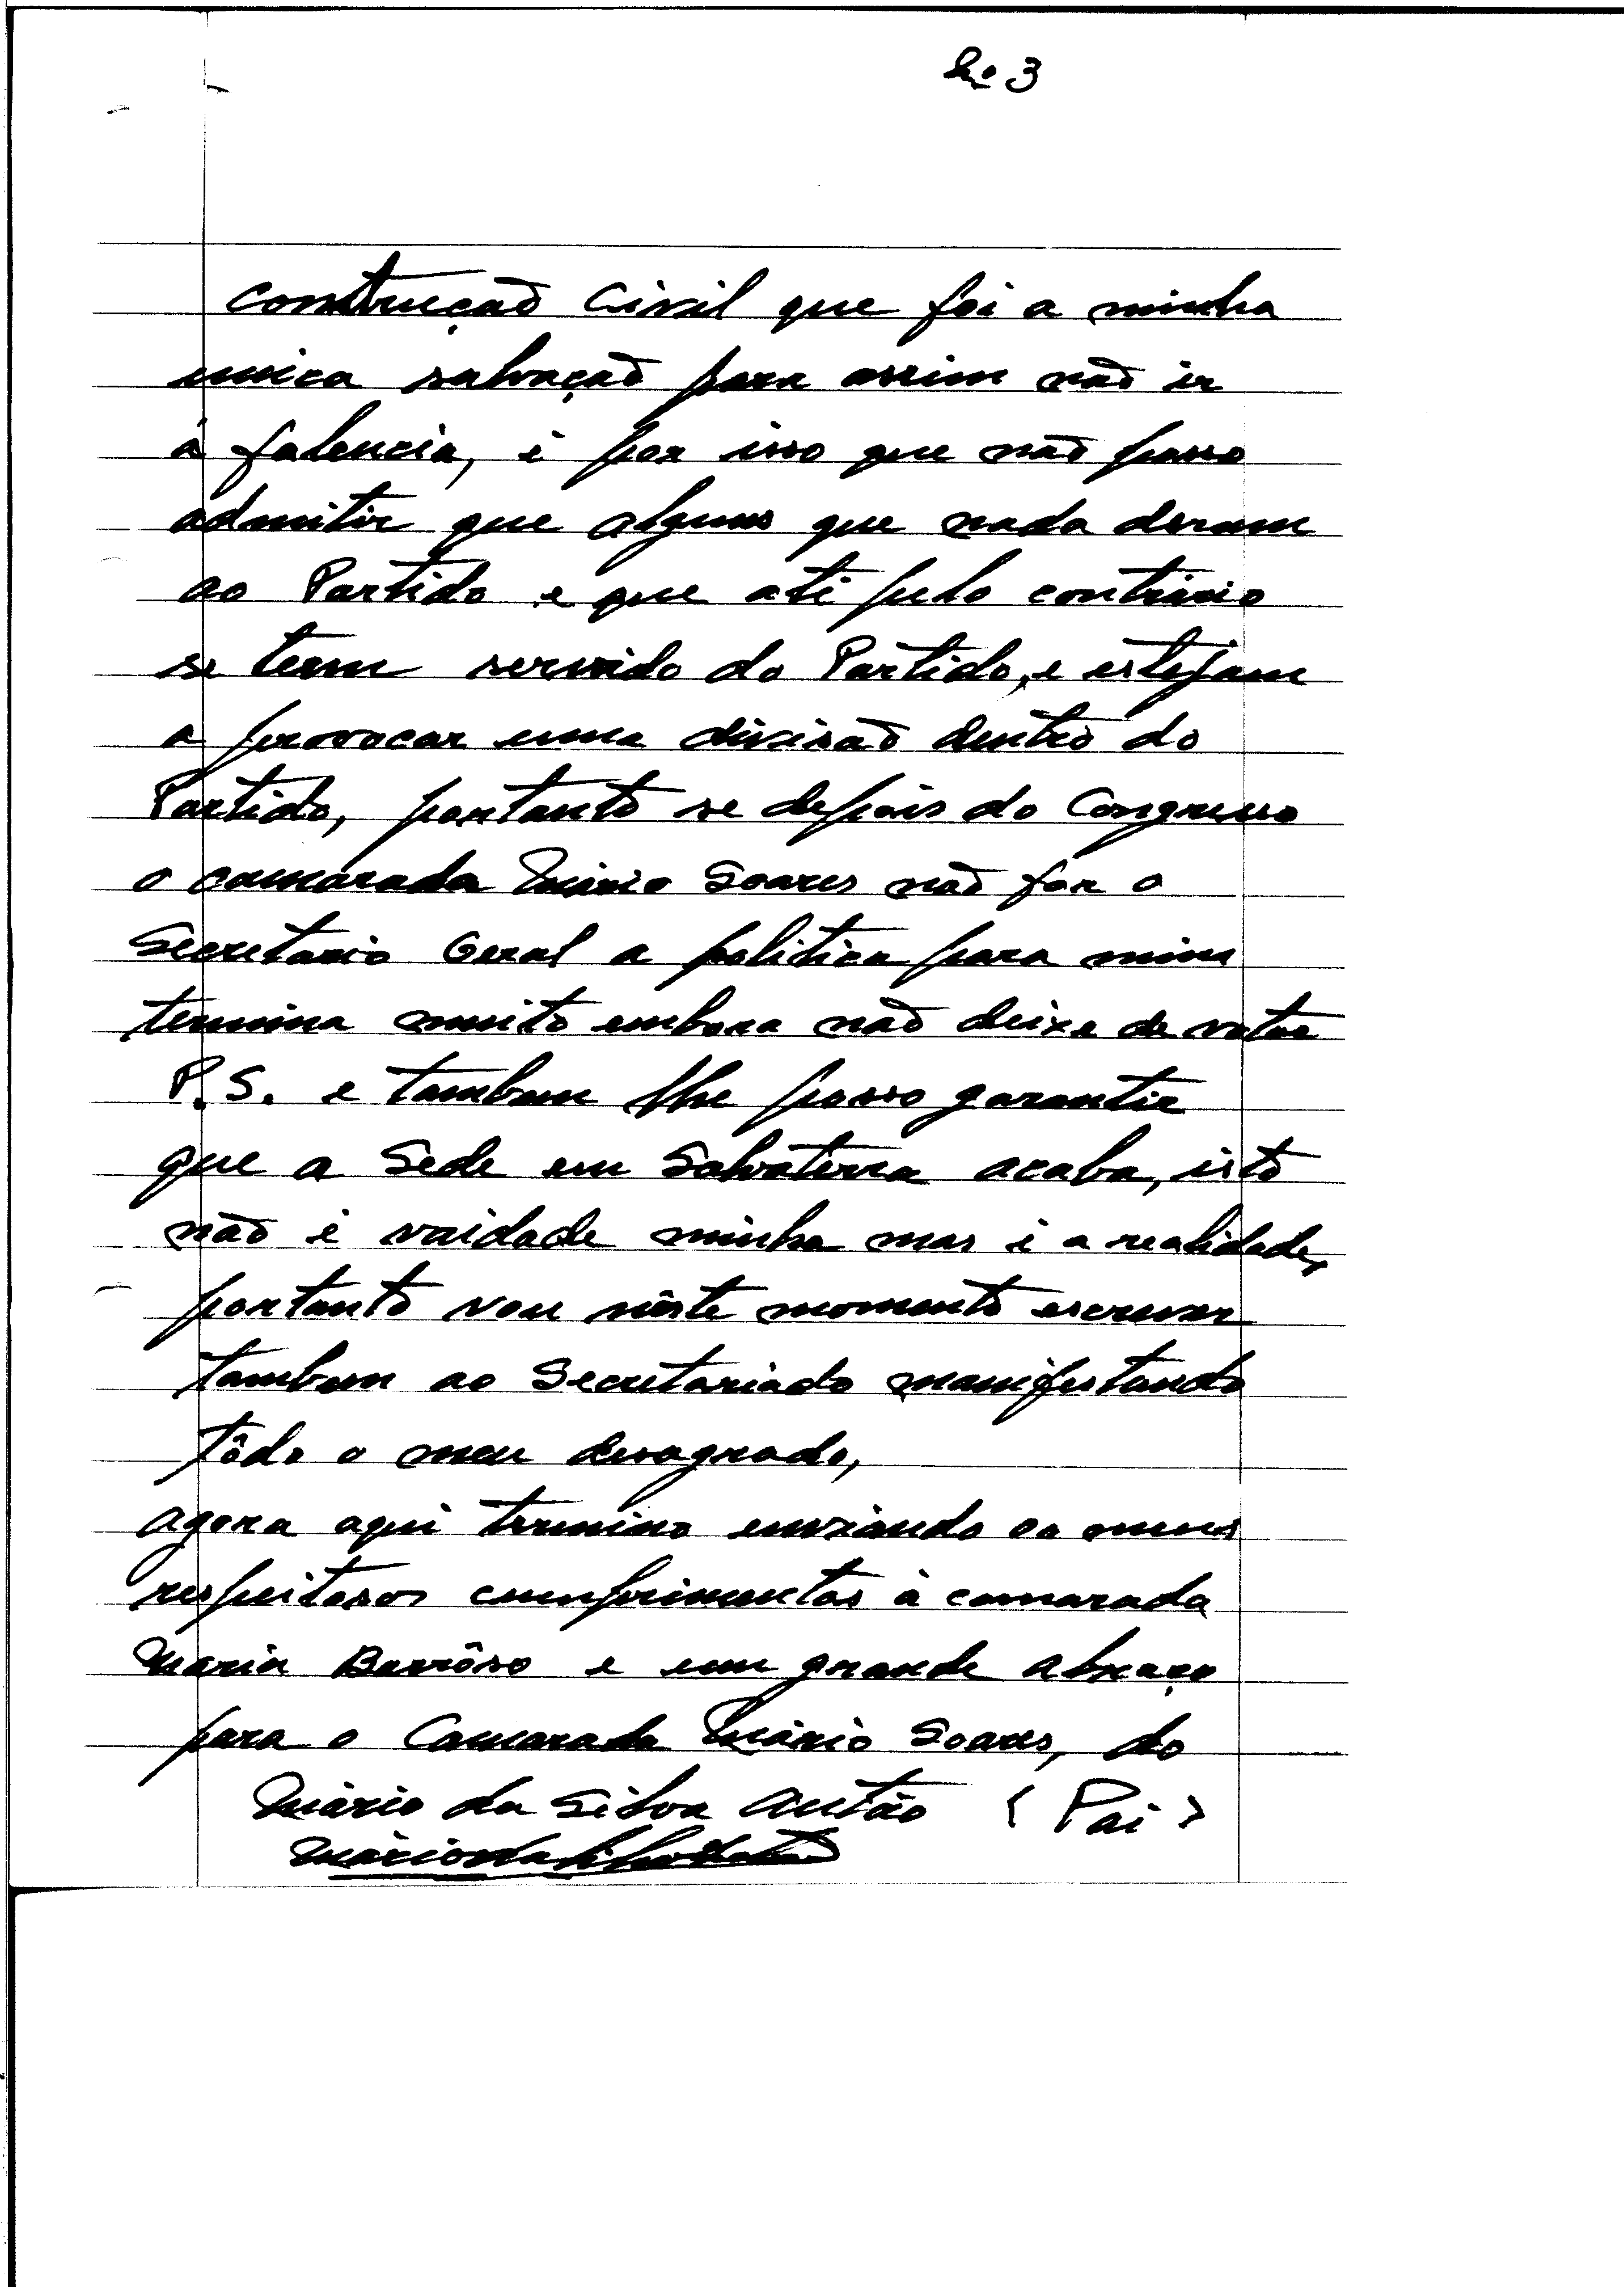 Nº 3
Contrução Civil que foi a minha
unica salvação para assim não ir
á falencia, é por isso que não posso
admitir que alguns que nada deram
ao Partido e que até pelo contrário
se tem servido do Partido, e estejam
a provocar uma divisão dentro do
Partido, portanto se depois do Congresso
o camarada Mário Soares não fôr o
Secretario Geral a politica para mim
termina muito embora não deixe de votar
P.S. e tambem lhe posso garantir
que a Sede em Salvaterra acaba, isto
não é vaidade minha mas é a realidade,
portanto vou nêste momento escrever
tambem ao Secretariado manifestando
tôdo o meu desagrado,
agora aqui termino enviando os meus
respeitosos cumprimentos à camarada
Maria Barrôso e um grande abraço
para o Camarada Mário Soares, do
Mário da Silva Antão (Pai)
Mário da Silva Antão